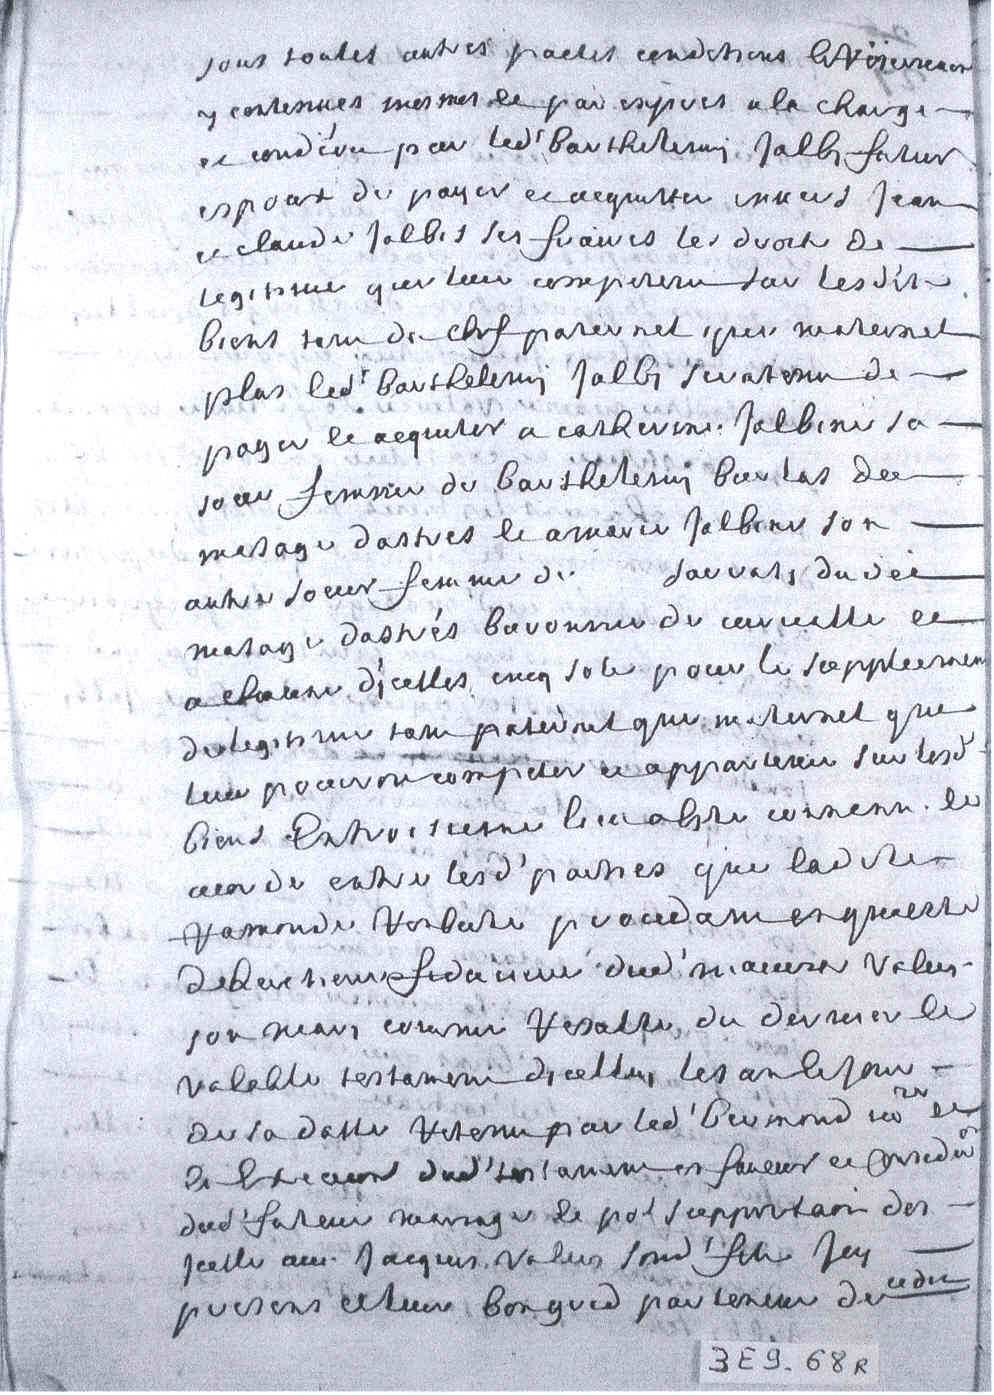 sous toutes autres pactes conditions &
y contenues mesmes et par exprès a la charge
et conditon par led' barthelemy Jalby futur
espoux de payer et acquitter envers Jean
et claude Jalbis ses freires les droits de
legitime que leur competent sur lesdits
biens tant de chef paternel que maternel
plus led' barthelemy Jalby sera tenu de
payer et acquiter a catherine Jalbine sa
soeur femme de barthelemy bourlas du
masage dastres et a marie Jalbine son
autre soeur femme de sauvaty dudit
masage dastrés baronnie de curvalle et
a chacune d'jcelles cinq sols pour le supplement
de legitime tant paternel que maternel que
leur pouvoit competer et appartenir sur lesd'
biens Entroisiesme lieu a este convenu et
acordé entre lesd' parties que ladite
Ramonde procedant en qualité
de heretiere fiduciere dud' maurice Valus
son mary comme Resulte du dernier et
valable testament dicelluy les an et jour
de sa datte Retenu par led' beumond nore et
de lautre aud' testament en faveur et consideron
dud' futeur mariage et pot supportaon des
jcelle aud. Jacques Valus sond' fils Jcy
present et leur bon gred par teneur de cedit
3E9-68R